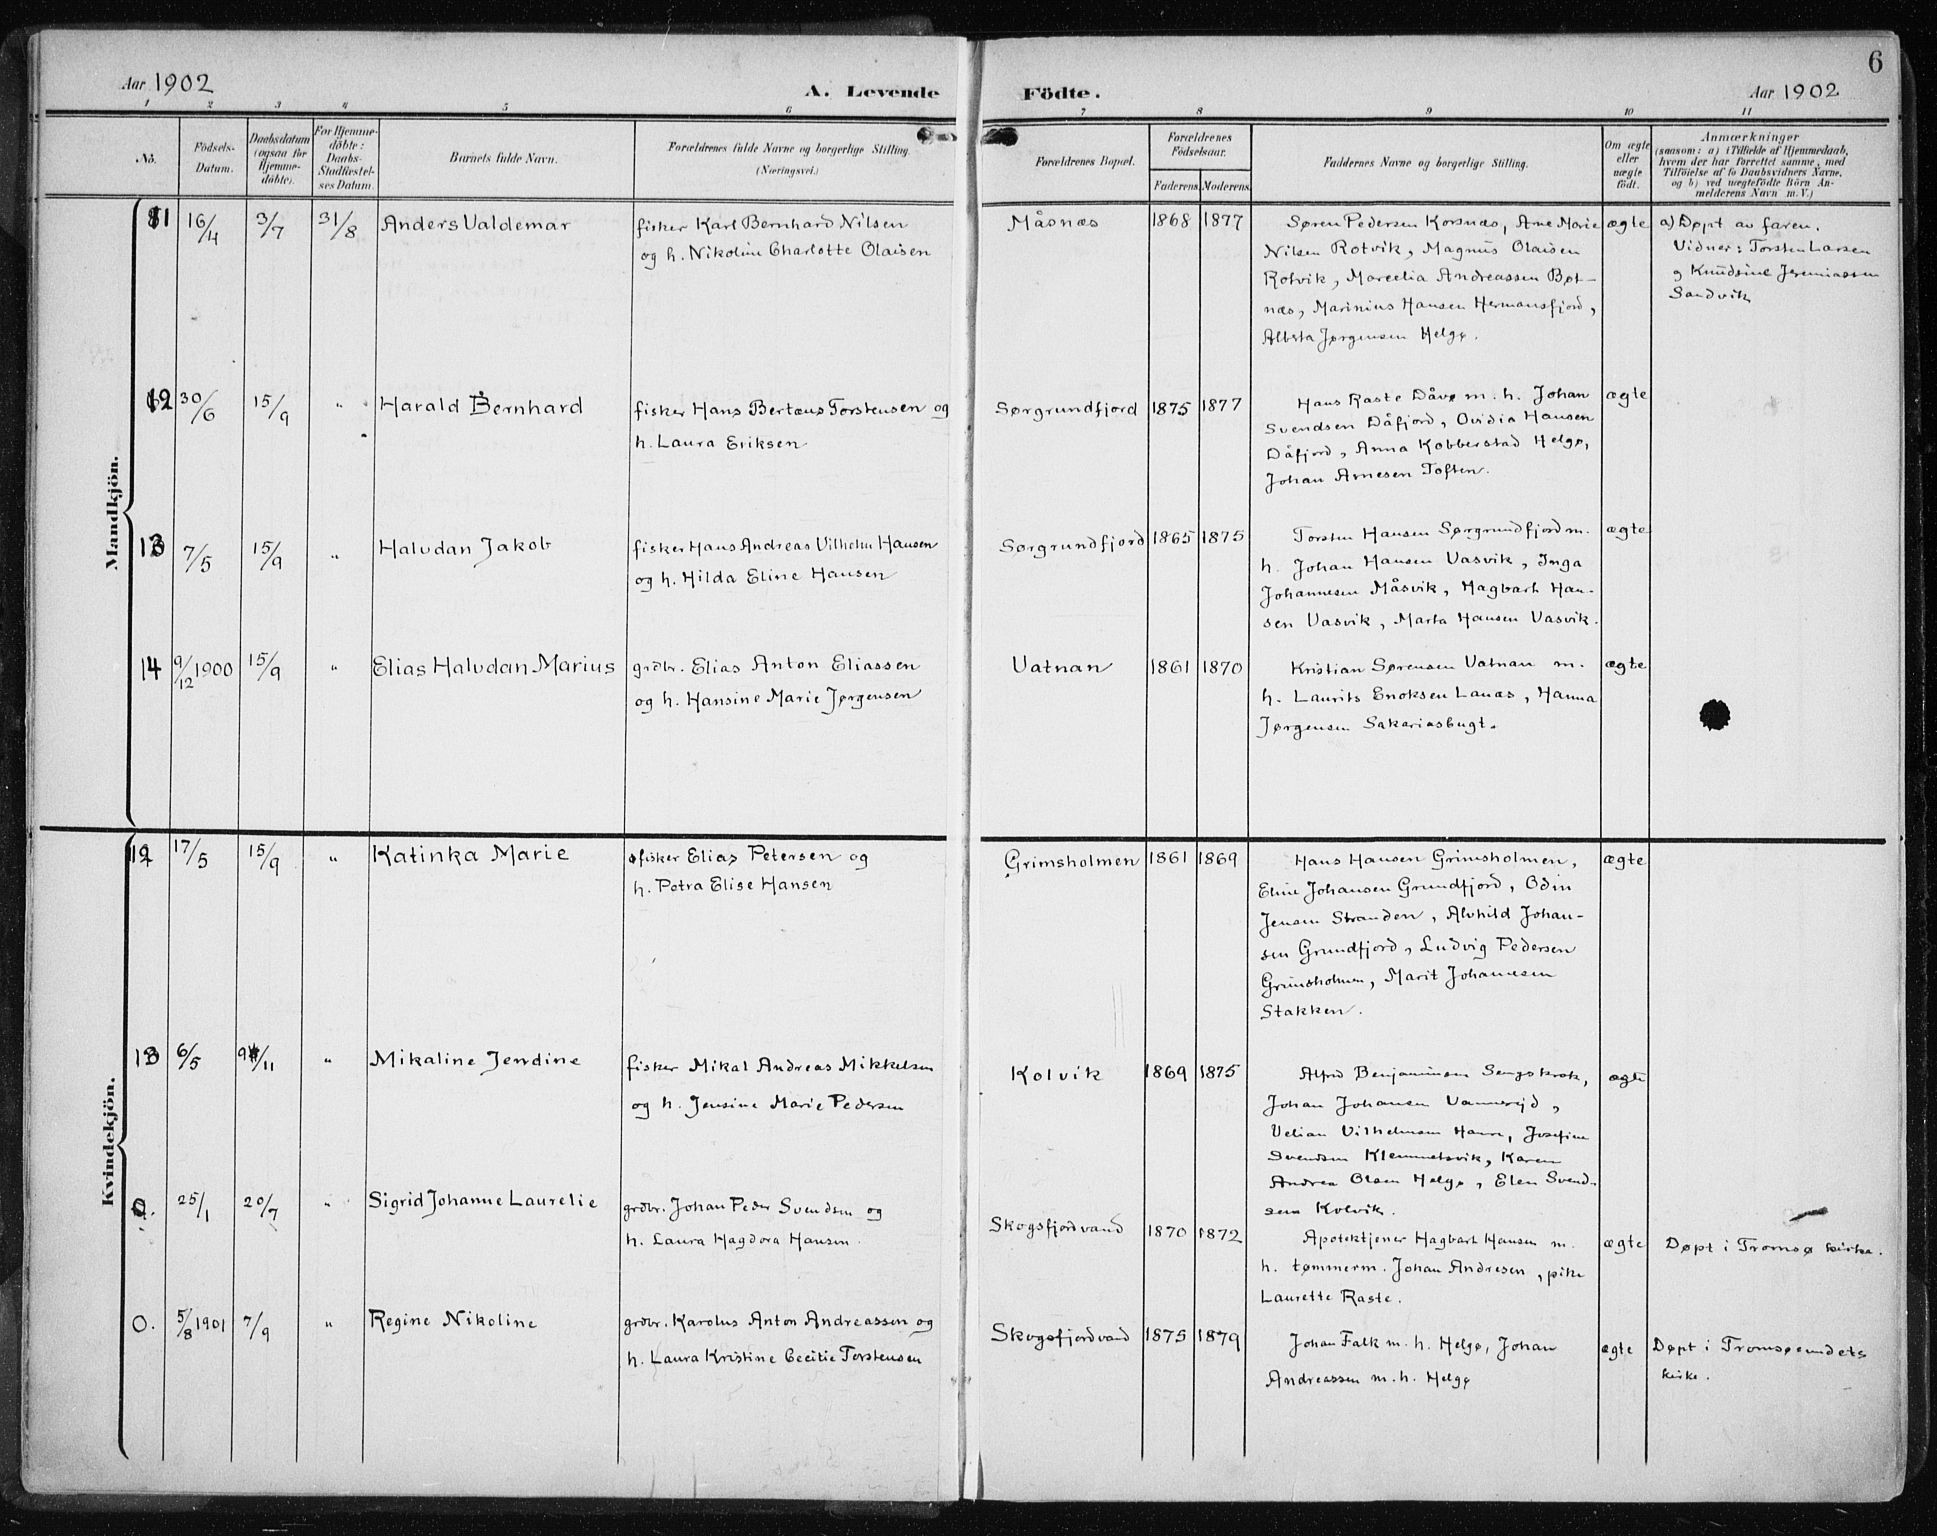 6
Aar 1902
A. Levende
Födte.
Aar 1902
1 2 3 4 5 6 7 8 9 10 11
No.
Födsels-
Datum.
Daabsdatum
(ogsaa for
Hjemme-
döbte).
For Hjemme-
döbte:
Daabs-
Stadfæstel-
ses Datum.
Barnets fulde Navn.
Forældrenes fulde Navne og borgerlige Stilling.
(Næringsvei.)
Forældrenes Bopæl.
Forældrenes
Födselsaar.
Faderens Moderens
Faddernes Navne og borgerlige Stilling.
Om ægte
eller
uægte
födt.
Anmærkninger
(saasom: a) i Tilfælde af Hjemmedaab,
hvem der har forrettet samme, med
Tilföielse af to Daabsvidners Navne,
og b) ved uægtefödte Börn An-
melderens Navn m. V.)
Mandkjön.
11
16/4
3/7
31/8
Anders Valdemar
fisker Karl Bernhard Nilsen
og h. Nikoline Charlotte Olaisen
Måsnæs
1868
1877
Søren Pedersen Korsnæs, Ane Marie
Nilsen Rotvik, Magnus Olaisen
Rotvik, Marcelia Andreassen Bøt-
næs, Marinius Hansen Hermansfjord,
Alberta Jørgensen Helgø.
ægte
a) Døpt av faren.
Vidner: Torsten Larsen
og Knudsine Jeremiassen
Sandvik
12
30/6
15/9
"
Harald Bernhard
fisker Hans Bertæus Torstensen og
h. Laura Eriksen
Sørgrundfjord
1875
1877
Hans Raste Dåvø m. h. Johan
Svendsen Dåfjord, Ovidia Hansen
Dåfjord, Anna Kobberstad Helgø,
Johan Arnesen Toften.
ægte
13
7/5
15/9
"
Halvdan Jakob
fisker Hans Andreas Vilhelm Hansen
og h. Hilda Eline Hansen
Sørgrundfjord
1865
1875
Torsten Hansen Sørgrundfjord m.
h. Johan Hansen Vasvik, Inga
Johannesen Måsvik, Hagbart Han-
sen Vasvik, Marta Hansen Vasvik.
ægte
14
9/12 1900
15/9
"
Elias Halvdan Marius
grdbr. Elias Anton Eliassen
og h. Hansine Marie Jørgensen
Vatnan
1861
1870
Kristian Sørensen Vatnan m.
h. Laurits Enoksen Lanæs, Hanna
Jørgensen Sakariasbugt.
ægte
Kvindekjön.
12
17/5
15/9
"
Katinka Marie
fisker Elias Petersen og
h. Petra Elise Hansen
Grimsholmen
1861
1869
Hans Hansen Grimsholmen,
Eline Johansen Grundfjord, Odin
Jensen Stranden, Alvhild Johan-
sen Grundfjord, Ludvig Pedersen
Grimsholmen, Marit Johannesen
Stakken.
ægte
13
6/5
9/11
"
Mikaline Jendine
fisker Mikal Andreas Mikkelsen
og h. Jensine Marie Pedersen
Kolvik
1869
1875
Alfred Benjaminsen Sengskrok,
Johan Johansen Vannereid,
Velian Vilhelmsen Hamre, Josefine
Svendsen Klemmetsvik, Karen
Andrea Olsen Helgø, Elen Svend-
sen Kolvik.
ægte
0.
25/1
20/7
"
Sigrid Johanne Laurelie
grdbr. Johan Peder Svendsen og
h. Laura Hagdora Hansen.
Skogsfjordvand
1870
1872
Apotektjener Hagbart Hansen m.
h. tømmerm. Johan Andresen, pike
Laurette Raste.
ægte
Døpt i Tromsø kirke.
0.
5/8 1901
7/9
"
Regine Nikoline
grdbr. Karolus Anton Andreassen og
h. Laura Kristine Cecilie Torstensen
Skogsfjordvand
1875
1879
Johan Falk m. h. Helgø, Johan
Andreassen m. h. Helgø
ægte
Døpt i Tromsøsundets
kirke.